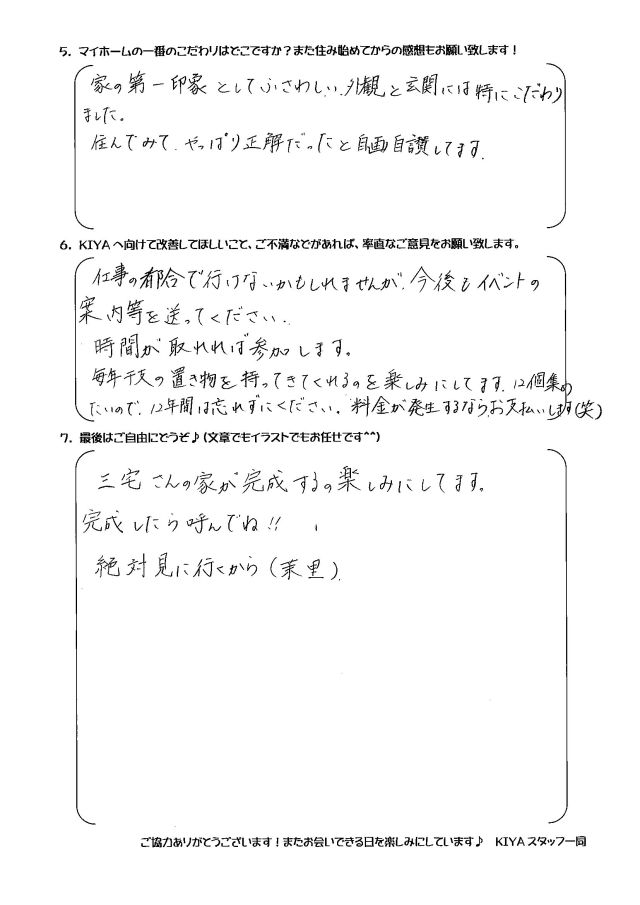 5. マイホームの一番のこだわりはどこですか？また住み始めてからの感想もお願い致します！
家の第一印象としてふさわしい外観と玄関には特にこだわり
ました。
住んでみて、やっぱり正解だったと自画自讃してます。
6. KIYAへ向けて改善してほしいこと、ご不満などがあれば、率直なご意見をお願い致します。
仕事の都合で行けないかもしれませんが、今後もイベントの
案内等を送ってください。
時間が取れれば参加します。
毎年干支の置き物を持ってきてくれるのを楽しみにしてます。12個集め
たいので、12年間は忘れずにください。料金が発生するならお支払いします(笑)
7. 最後はご自由にどうぞ♪(文章でもイラストでもお任せです^^)
三宅さんの家が完成するの楽しみにしてます。
完成したら呼んでね!!
絶対見に行くから(茉里)
ご協力ありがとうございます！またお会いできる日を楽しみにしています♪ KIYAスタッフ一同